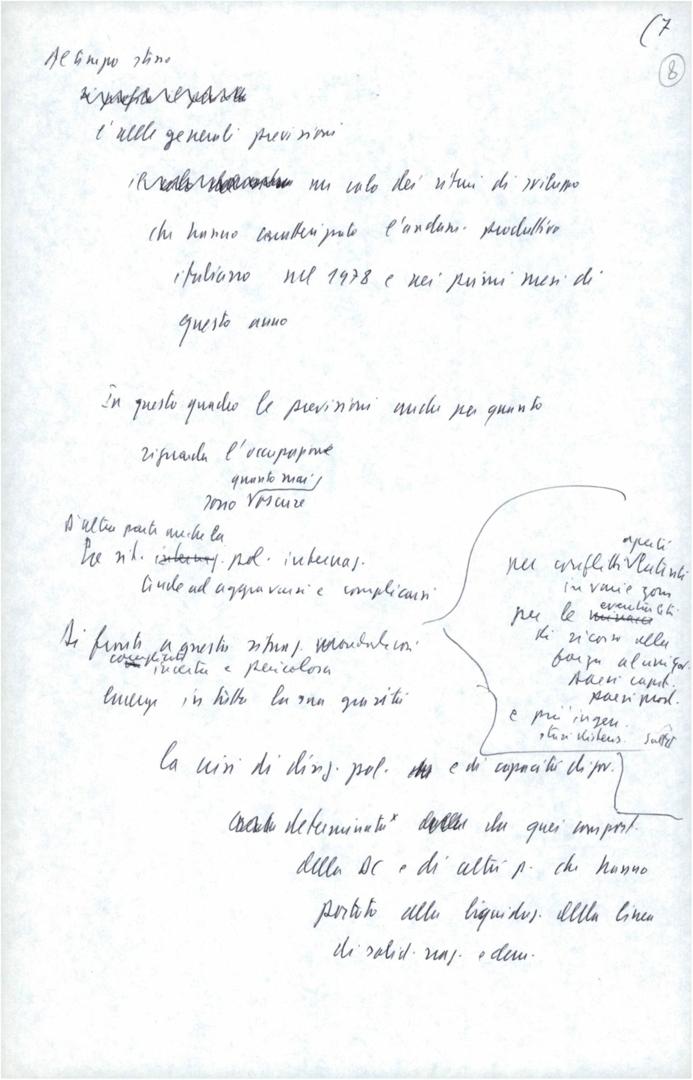 (7
8
Al tempo stesso
è nelle generali previsioni
un calo dei ritmi di sviluppo
che hanno caratterizzato l'andam. produttivo
italiano nel 1978 e nei primi mesi di
questo anno
In questo quadro le previsioni anche per quanto
riguarda l'occupazione
quanto mai
sono oscure
D'altra parte anche la
sit. pol. internaz.
tende ad aggravarsi e complicarsi
aperti
per conflitti latenti
in varie zone
eventualità
per le
di ricorso alla
forza
paesi capit.
paesi prod.
e più in gen.
Di fronte a questa situaz. mondiale così
complicata
incerta e pericolosa
emerge in tutta la sua gravità
la crisi di direz. pol. e di capacità di gov.
determinata x da quei comport.
della DC e di altri p. che hanno
portato alla liquidaz. della linea
di solid. naz. e dem.